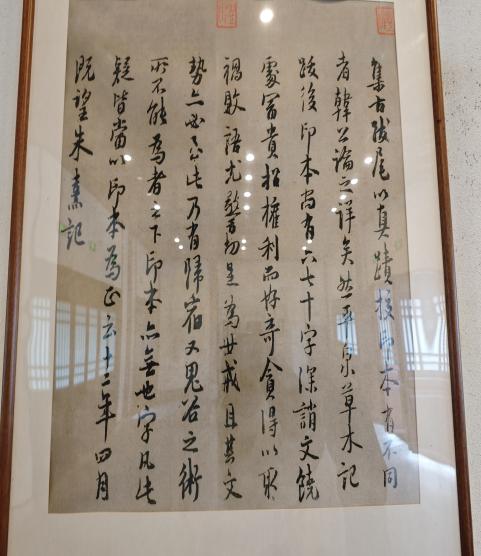 集古跋尾以真蹟校印本有不同
者韓公論之詳矣然平泉草木記
跋後印本尚有六七十字深誚文饒
處富貴招權利而好奇貪得以取
禍敗語尤警切足為世戒且其文
勢亦必至此乃有歸宿又鬼谷之術
所不能為者之下印本亦無也字凡此
疑皆當以印本為正云十二年四月
既望朱熹記